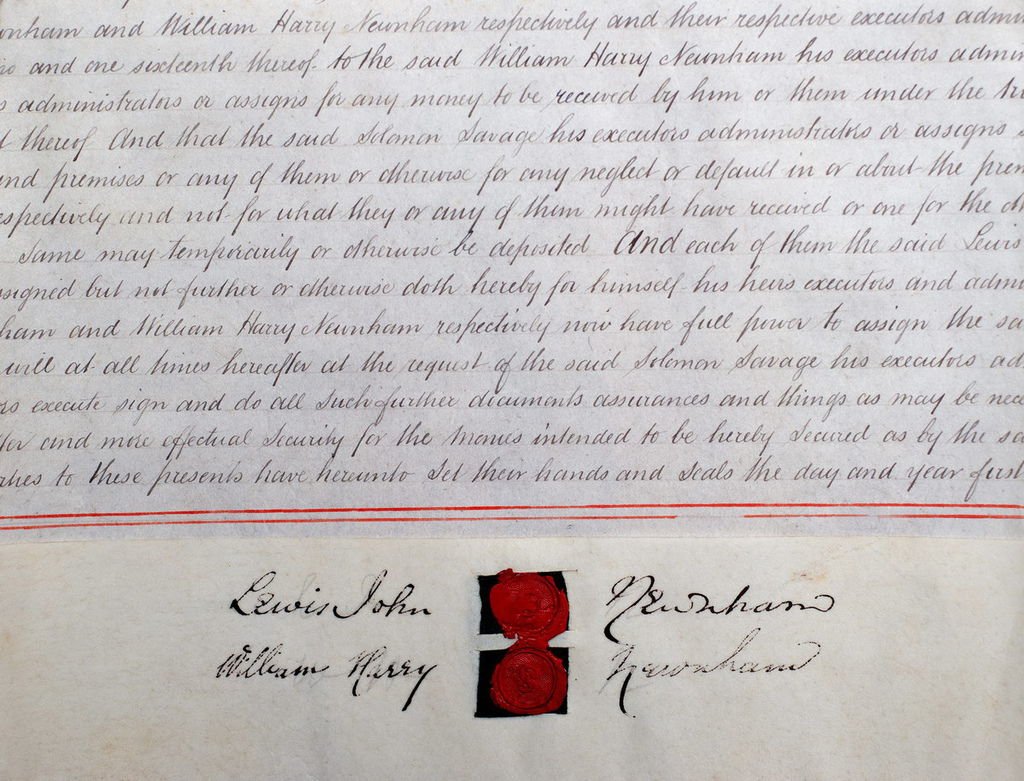 and William Harry Newnham respectively and their respective executors
and one sixteenth thereof to the said William Harry Newnham his executors
administrators or assigns for any money to be received by him or them under the
thereof And that the said Solomon Savage his executors administrators or assigns
and premises or any of them or otherwise for any neglect or default in or about the
respectively and not for what they or any of them might have received or one for the
Same may temporarily or otherwise be deposited And each of them the said Lewis
assigned but not further or otherwise doth hereby for himself his heirs executors and
ham and William Harry Newnham respectively now have full power to assign the
will at all times hereafter at the request of the said Solomon Savage his executors
execute sign and do all such further documents assurances and things as may be
and more effectual Security for the monies intended to be hereby Secured as by the
to these presents have hereunto Set their hands and Seals the day and year first
Lewis John Newnham
William Harry Newnham